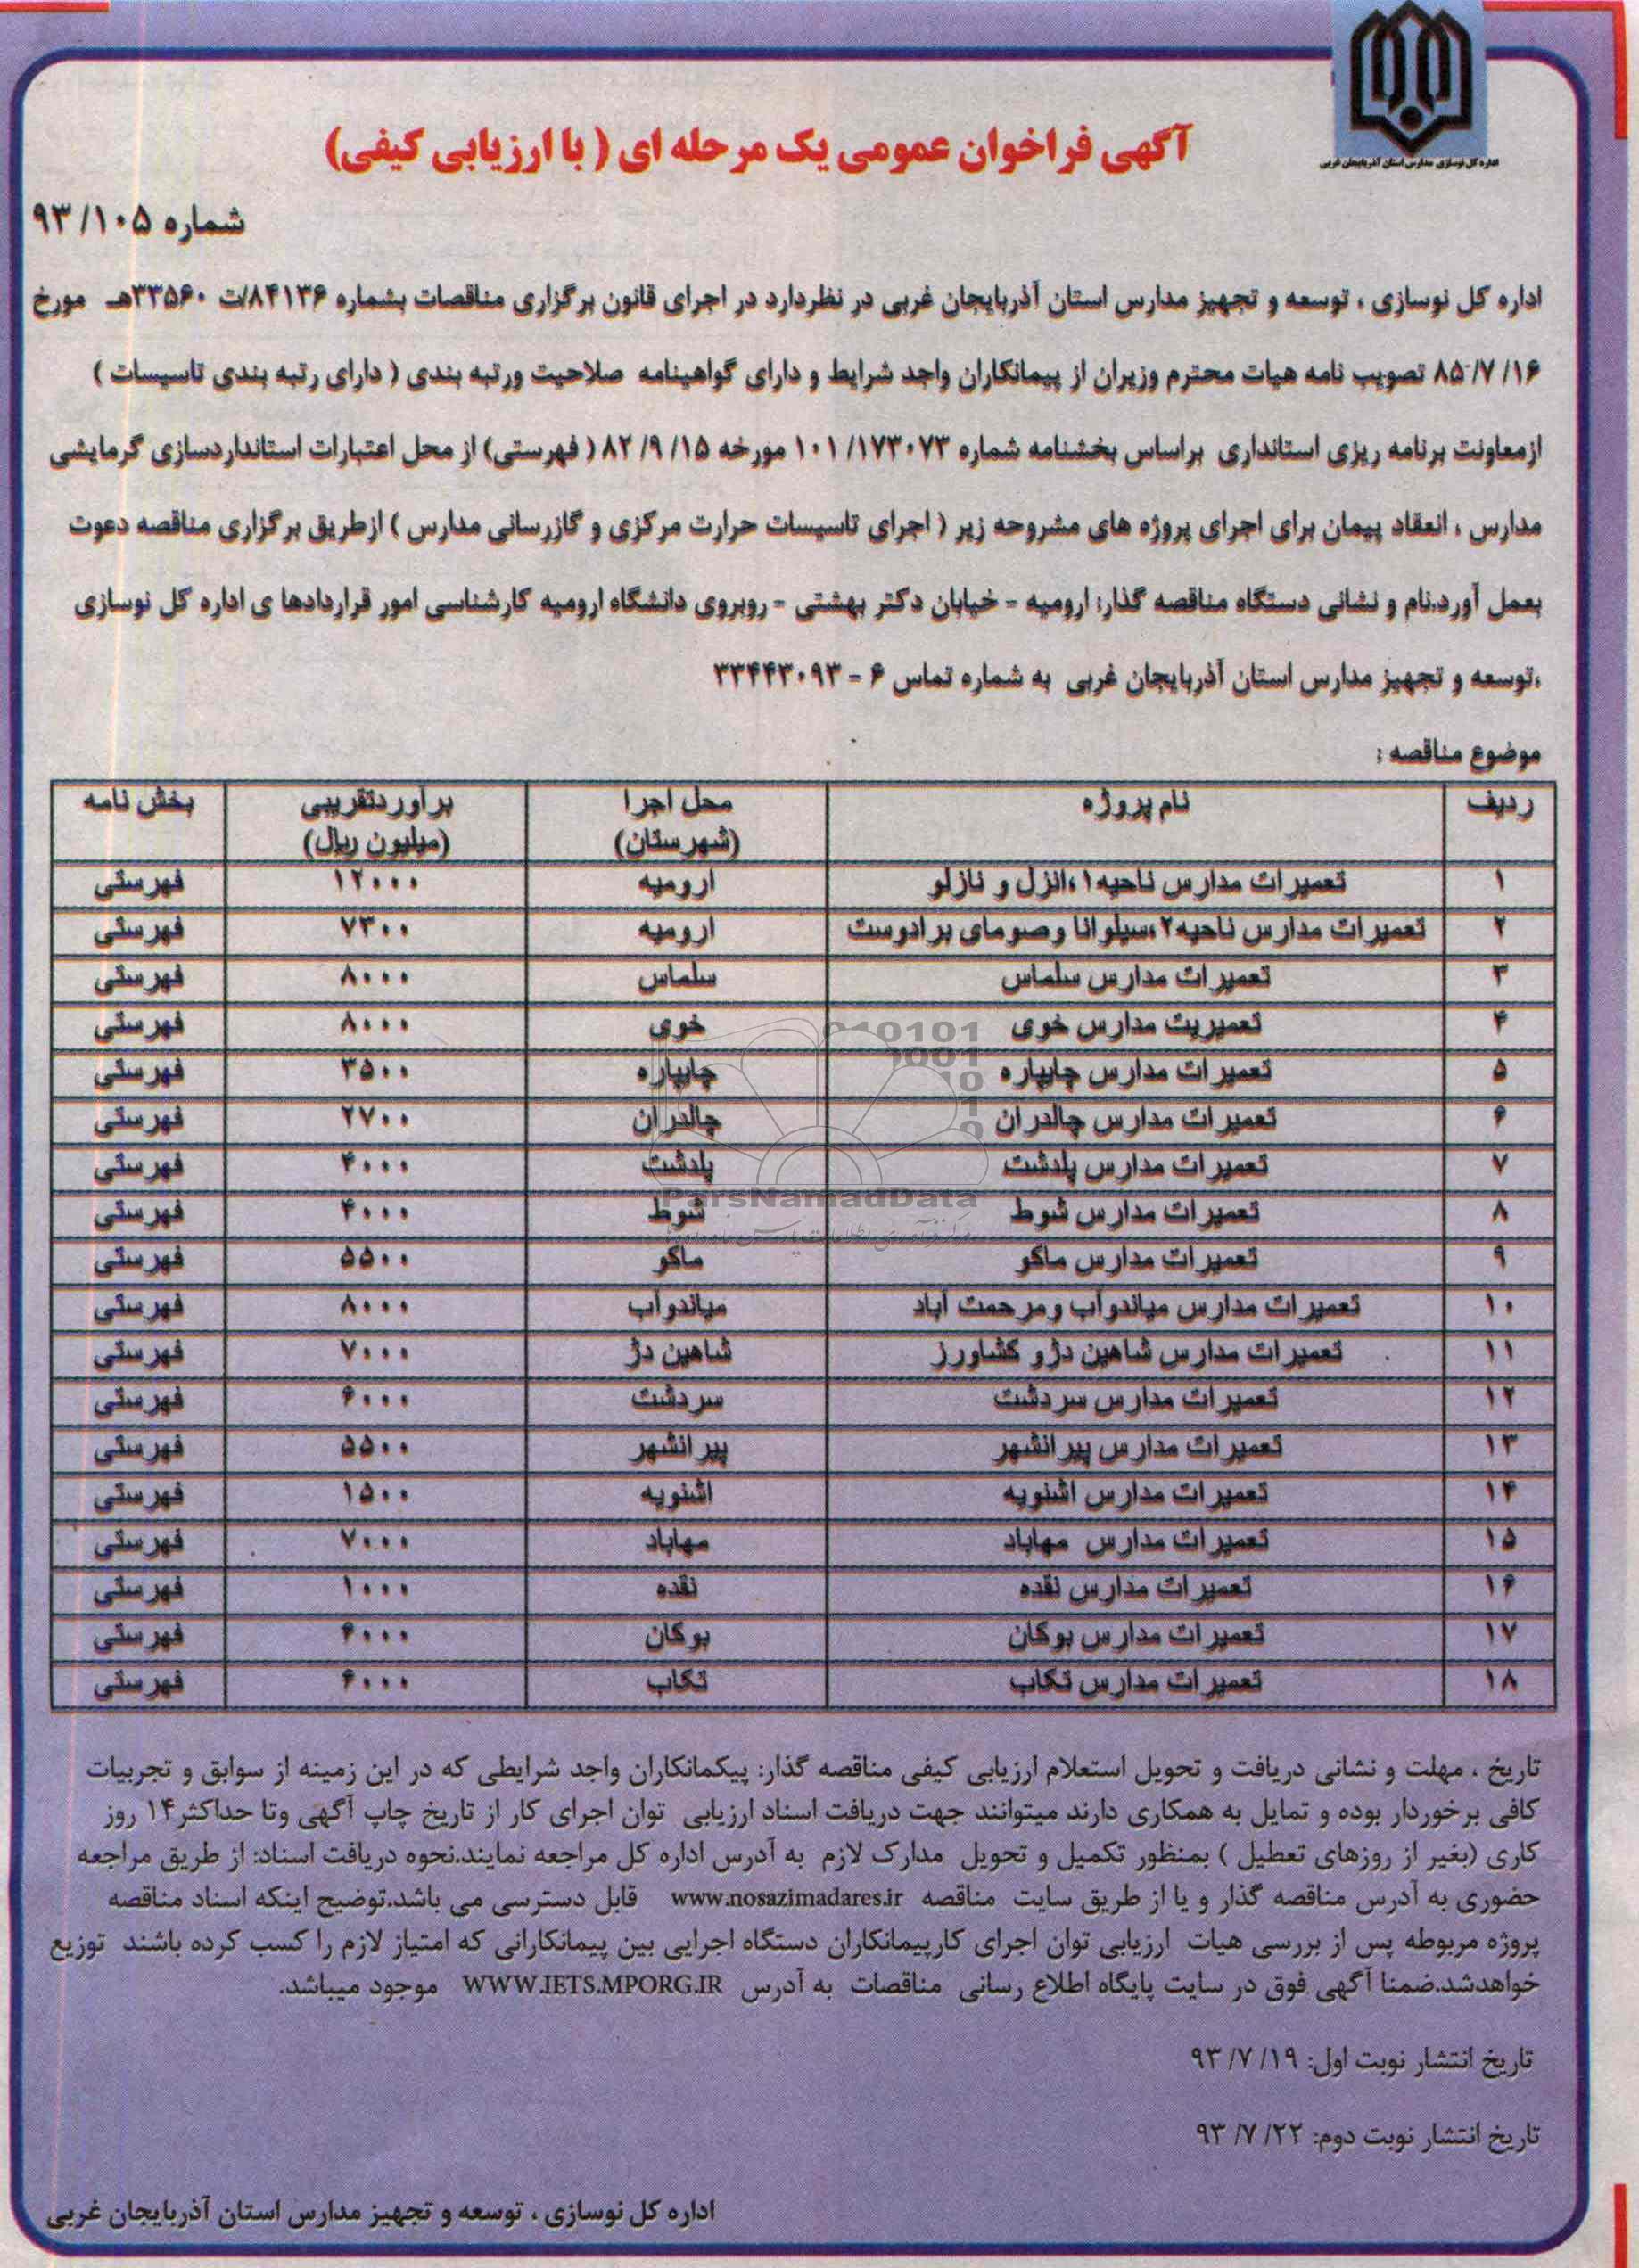 اداره کل نوسازی مدارس استان آذربایجان غربی
آگهی فراخوان عمومی یک مرحله ای ( با ارزیابی کیفی)
شماره ۹۳/۱۰۵
اداره کل نوسازی ، توسعه و تجهیز مدارس استان آذربایجان غربی در نظردارد در اجرای قانون برگزاری مناقصات بشماره ۸۴۱۳۶/ت ۳۳۵۶۰هـ مورخ
۸۵/۷/۱۶ تصویب نامه هیات محترم وزیران از پیمانکاران واجد شرایط و دارای گواهینامه صلاحیت ورتبه بندی ( دارای رتبه بندی تاسیسات )
ازمعاونت برنامه ریزی استانداری براساس بخشنامه شماره ۱۰۱/۱۷۳۰۷۳ مورخه ۸۲/۹/۱۵ ( فهرستی) از محل اعتبارات استانداردسازی گرمایشی
مدارس ، انعقاد پیمان برای اجرای پروژه های مشروحه زیر ( اجرای تاسیسات حرارت مرکزی و گازرسانی مدارس ) ازطریق برگزاری مناقصه دعوت
بعمل آورد.نام و نشانی دستگاه مناقصه گذار: ارومیه - خیابان دکتر بهشتی - روبروی دانشگاه ارومیه کارشناسی امور قراردادها ی اداره کل نوسازی
،توسعه و تجهیز مدارس استان آذربایجان غربی به شماره تماس ۶ - ۳۳۴۴۳۰۹۳
موضوع مناقصه :
ردیف نام پروژه محل اجرا (شهرستان) برآوردتقریبی (میلیون ریال) بخش نامه
۱ تعمیرات مدارس ناحیه۱ ،انزل و نازلو ارومیه ۱۲۰۰۰ فهرستی
۲ تعمیرات مدارس ناحیه۲،سیلوانا وصومای برادوست ارومیه ۷۳۰۰ فهرستی
۳ تعمیرات مدارس سلماس سلماس ۸۰۰۰ فهرستی
۴ تعمیریت مدارس خوی خوی ۸۰۰۰ فهرستی
۵ تعمیرات مدارس چایپاره چایپاره ۳۵۰۰ فهرستی
۶ تعمیرات مدارس چالدران چالدران ۲۷۰۰ فهرستی
۷ تعمیرات مدارس پلدشت پلدشت ۴۰۰۰ فهرستی
۸ تعمیرات مدارس شوط شوط ۴۰۰۰ فهرستی
۹ تعمیرات مدارس ماکو ماکو ۵۵۰۰ فهرستی
۱۰ تعمیرات مدارس میاندوآب ومرحمت آباد میاندوآب ۸۰۰۰ فهرستی
۱۱ تعمیرات مدارس شاهین دژو کشاورز شاهین دژ ۷۰۰۰ فهرستی
۱۲ تعمیرات مدارس سردشت سردشت ۶۰۰۰ فهرستی
۱۳ تعمیرات مدارس پیرانشهر پیرانشهر ۵۵۰۰ فهرستی
۱۴ تعمیرات مدارس اشنویه اشنویه ۱۵۰۰ فهرستی
۱۵ تعمیرات مدارس مهاباد مهاباد ۷۰۰۰ فهرستی
۱۶ تعمیرات مدارس نقده نقده ۱۰۰۰ فهرستی
۱۷ تعمیرات مدارس بوکان بوکان ۶۰۰۰ فهرستی
۱۸ تعمیرات مدارس تکاب تکاب ۶۰۰۰ فهرستی
ParsNamadData
تاریخ ، مهلت و نشانی دریافت و تحویل استعلام ارزیابی کیفی مناقصه گذار: پیکمانکاران واجد شرایطی که در این زمینه از سوابق و تجربیات
کافی برخوردار بوده و تمایل به همکاری دارند میتوانند جهت دریافت اسناد ارزیابی توان اجرای کار از تاریخ چاپ آگهی وتا حداکثر۱۴ روز
کاری (بغیر از روزهای تعطیل ) بمنظور تکمیل و تحویل مدارک لازم به آدرس اداره کل مراجعه نمایند.نحوه دریافت اسناد: از طریق مراجعه
حضوری به آدرس مناقصه گذار و یا از طریق سایت مناقصه www.nosazimadares.ir قابل دسترسی می باشد.توضیح اینکه اسناد مناقصه
پروژه مربوطه پس از بررسی هیات ارزیابی توان اجرای کارپیمانکاران دستگاه اجرایی بین پیمانکارانی که امتیاز لازم را کسب کرده باشند توزیع
خواهدشد.ضمنا آگهی فوق در سایت پایگاه اطلاع رسانی مناقصات به آدرس WWW.IETS.MPORG.IR موجود میباشد.
تاریخ انتشار نوبت اول: ۹۳/۷/۱۹
تاریخ انتشار نوبت دوم: ۹۳/۷/۲۲
اداره کل نوسازی ، توسعه و تجهیز مدارس استان آذربایجان غربی